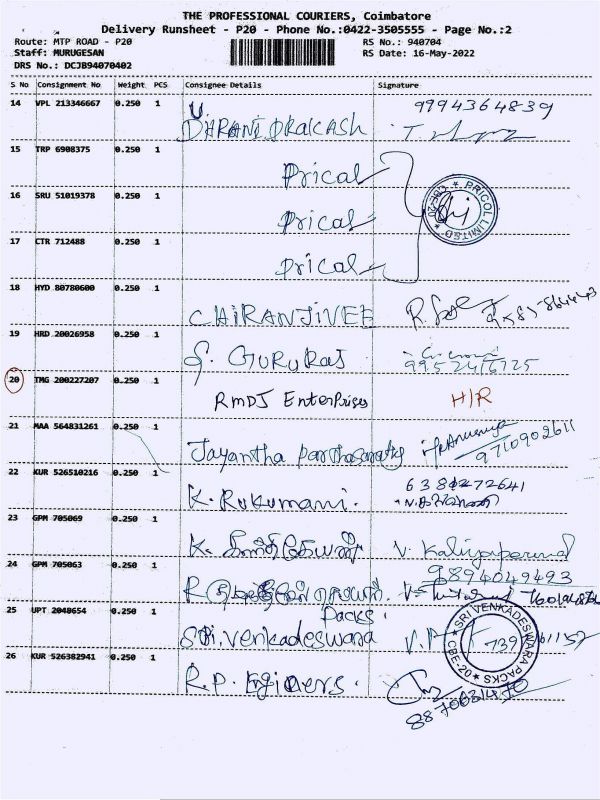 THE PROFESSIONAL COURIERS, Coimbatore
Delivery Runsheet - P20 - Phone No.:0422-3505555 - Page No.:2
Route: MTP ROAD - P20 RS No.: 940704
Staff: MURUGESAN RS Date: 16-May-2022
DRS No.: DCJB94070402
S No Consignment No Weight PCS Consignee Details Signature
14 VPL 213346667 0.250 1 DHARANI PRAKASH 9994364839
15 TRP 6908375 0.250 1 Prical
PRICOL LIMITED CBE-20
16 SRU 51019378 0.250 1 Prical
17 CTR 712488 0.250 1 Prical
18 HYD 80780600 0.250 1 CHIRANJIVEE
19 HRD 20026958 0.250 1 S. GURURAJ 9952416725
20 TMG 200227207 0.250 1 RMDJ Enterprises H/R
21 MAA 564831261 0.250 1 Jayantha Parthasarathy 9710902611
22 KUR 526510216 0.250 1 K. Rukumani.
23 GPM 705069 0.250 1 K. V. Kaliyaperumal
9894049493
24 GPM 705063 0.250 1
25 UPT 2048654 0.250 1 Sri.Venkadeswara Packs.
SRI VENKADESWARA PACKS CBE-20
26 KUR 526382941 0.250 1 R.P. Egineers.